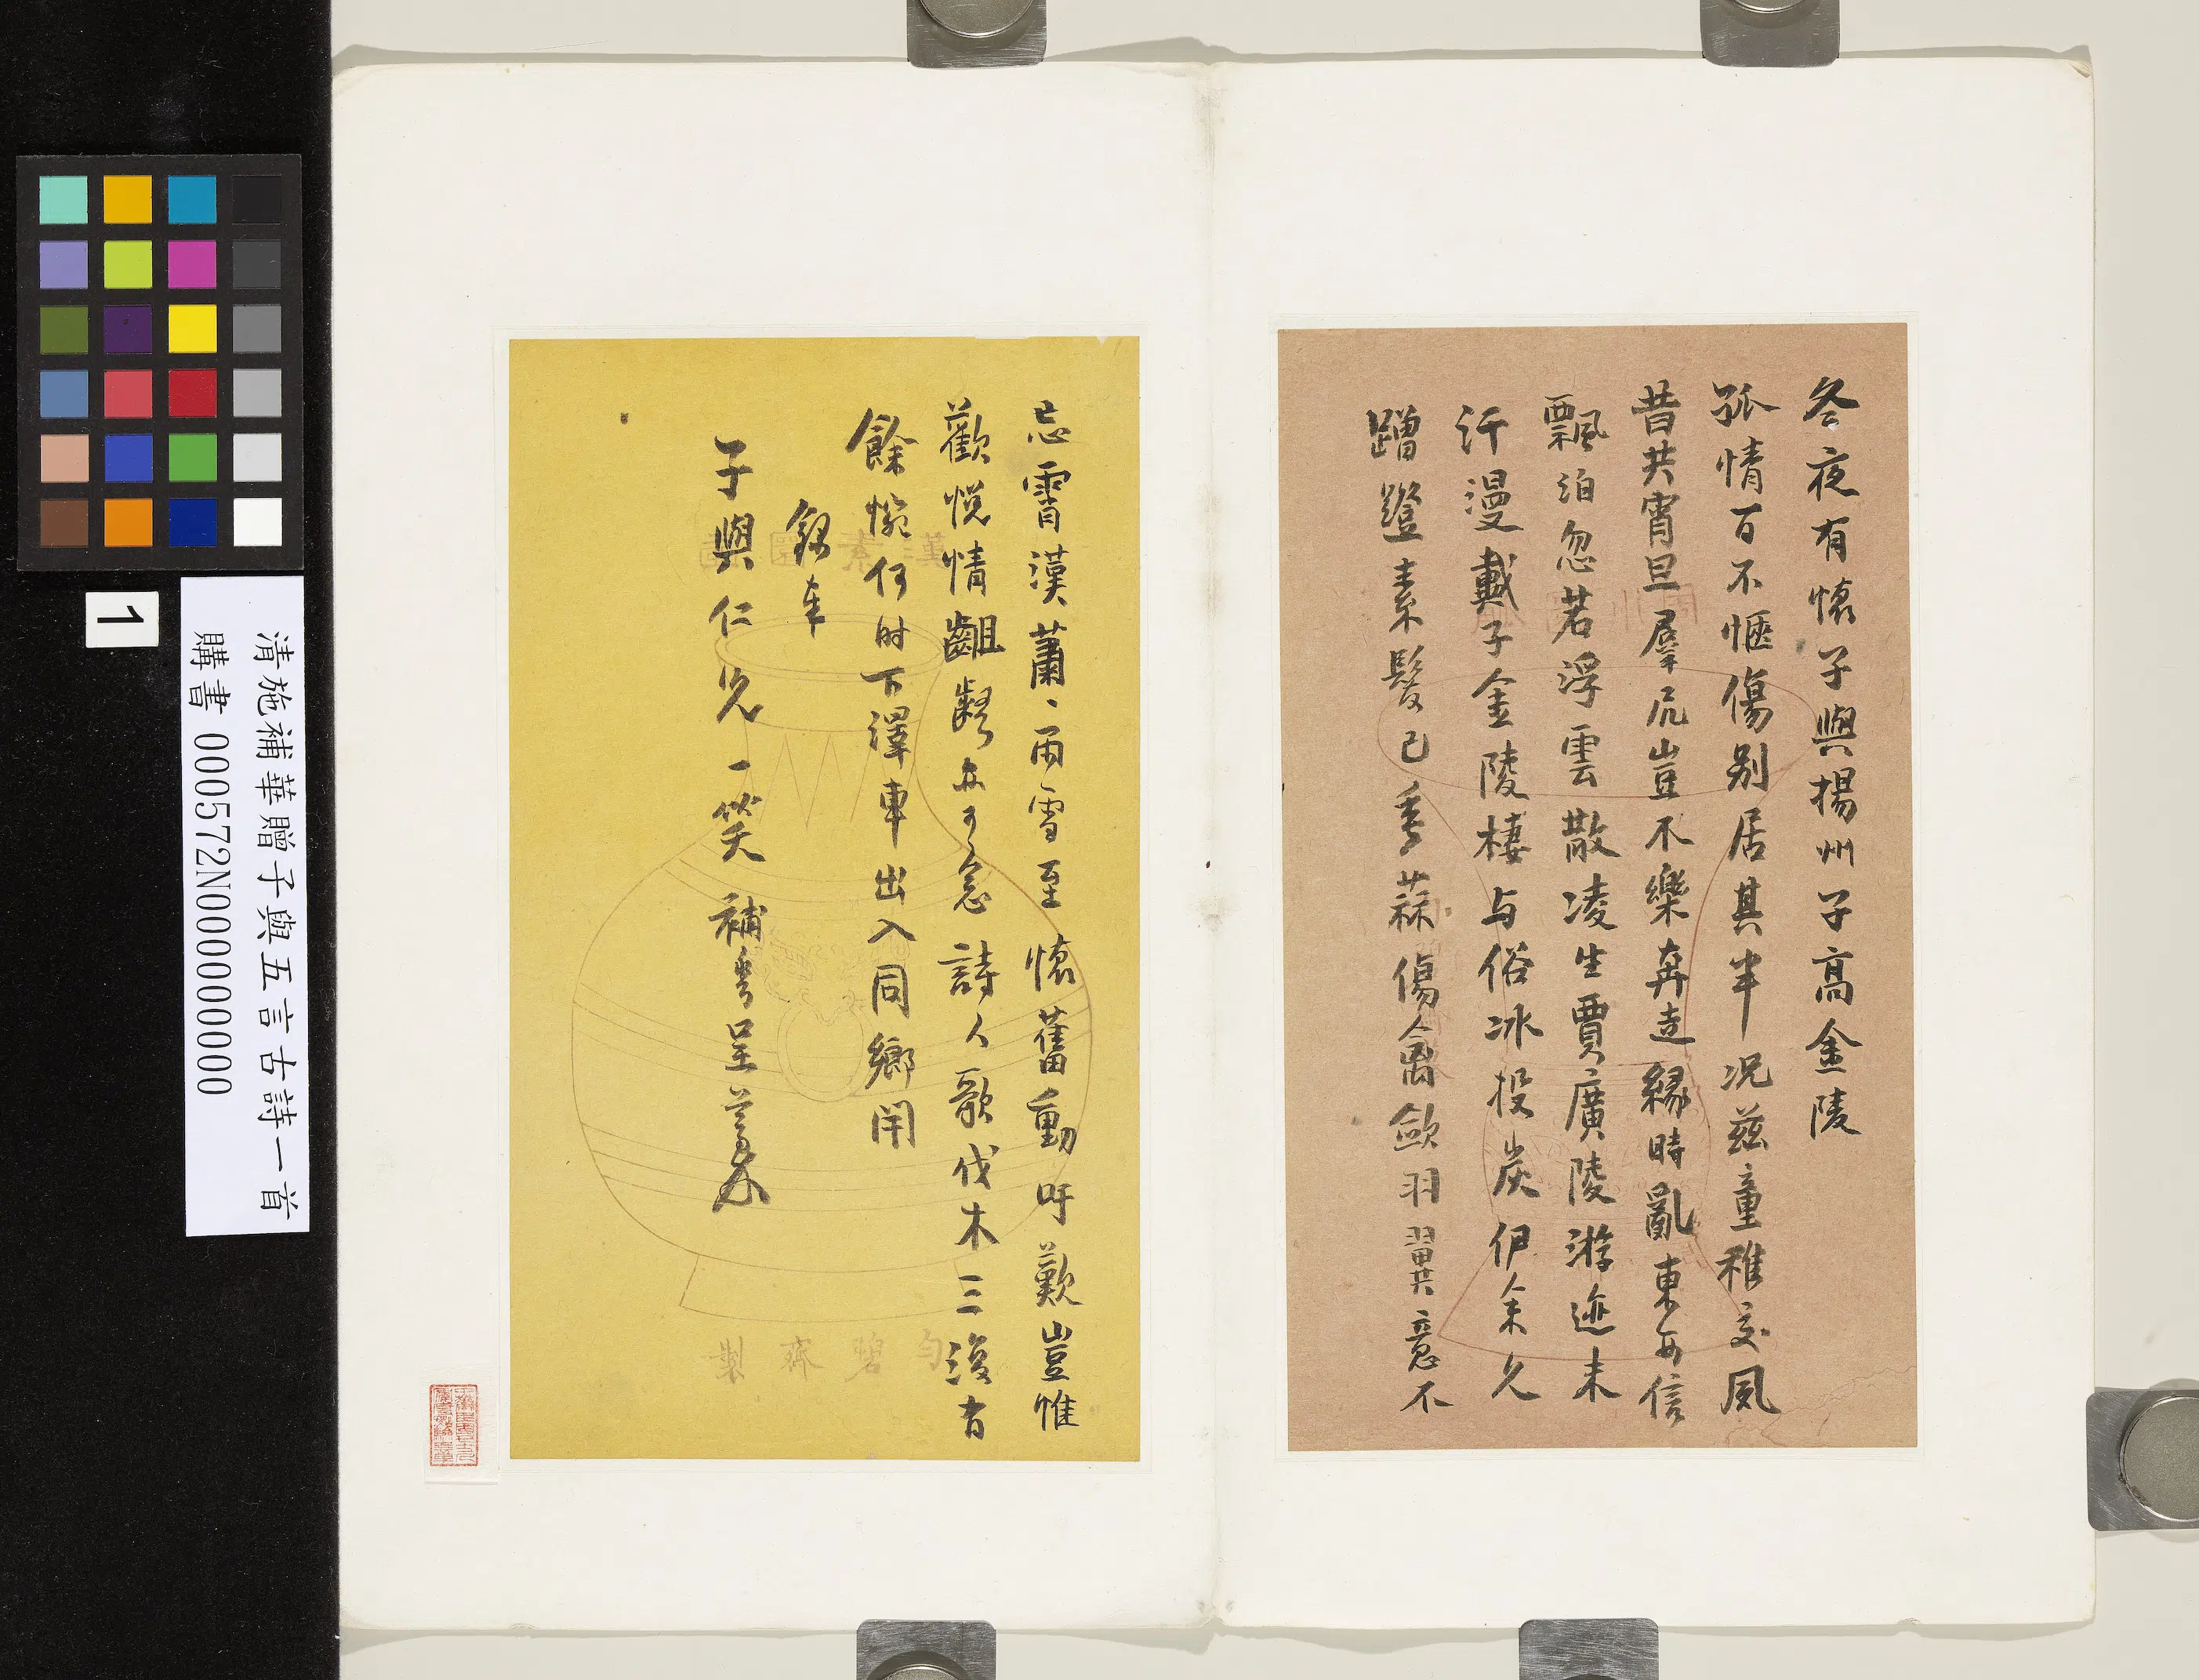 冬夜有懷子與揚州子高金陵
孤情百不愜傷別居其半况茲童稚交夙
昔共宵旦羣凥豈不樂奔走緣時亂東西信
飄泊忽若浮雲散凌生賈廣陵游迹未
汗漫戴子金陵棲与俗冰投炭伊余久
蹭蹬素髮已垂蒜傷禽歛羽翼意不
忘霄漢蕭、雨雪至懷舊動吁歎豈惟
歡悅情齟齬亦可念詩人歌伐木三復有
餘惋何時下澤車出入同鄉閈
錄奉
子與仁兄一笑補華呈藁
匀碧齋製
清施補華贈子與五言古詩一首
購書 000572N000000000
1